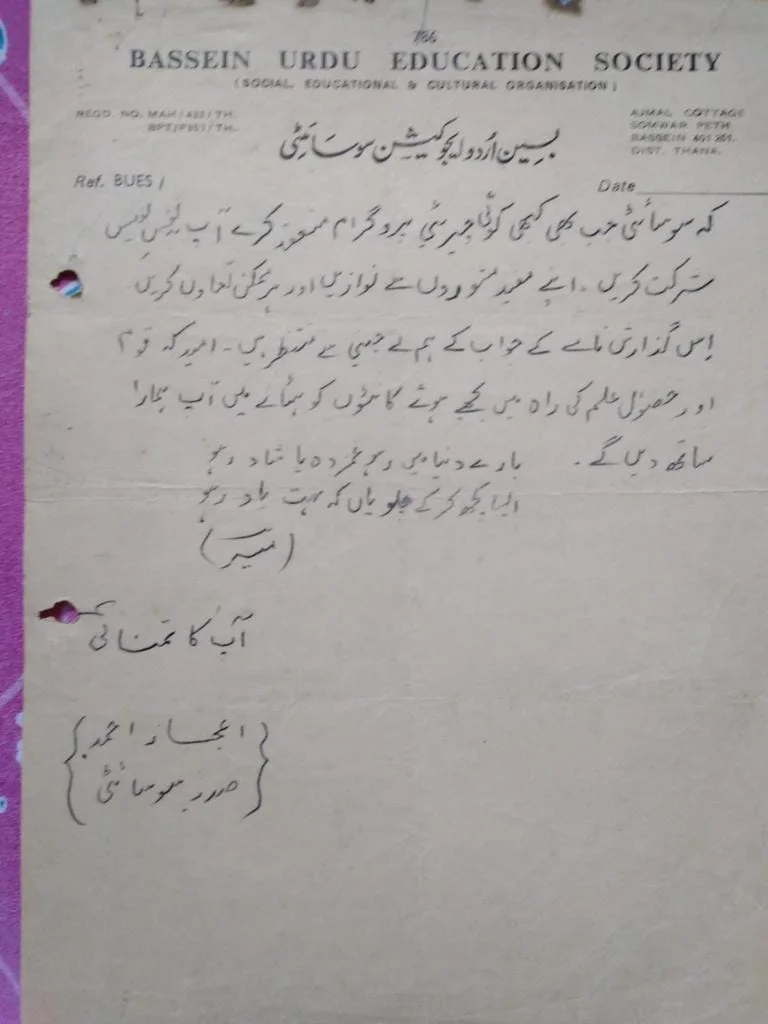 786
BASSEIN URDU EDUCATION SOCIETY
( SOCIAL, EDUCATIONAL & CULTURAL ORGANISATION )
REGD. NO. MAH / 433 / TH.
AJMAL COTTAGE
SOMWAR PETH
BASSEIN 401 201.
DIST. THANA.
بسین اُردو ایجوکیشن سوسائٹی
Ref. BUES /
Date
کہ سوسائٹی جب بھی کبھی کوئی چیریٹی پروگرام منعقد کرے آپ بہ نفسِ نفیس
شرکت کریں ۔ اپنے مفید مشوروں سے نوازیں اور ہر ممکن تعاون کریں
اِس گذارش نامے کے جواب کے ہم بے چینی سے منتظر ہیں ۔ امید کہ قوم
اور حصولِ علم کی راہ میں بچھے ہوئے کانٹوں کو ہٹانے میں آپ ہمارا
ساتھ دیں گے ۔
بارے دنیا میں رہو غمزدہ یا شاد رہو
ایسا کچھ کر کے چلو یاں کہ بہت یاد رہو
( میر )
آپ کا تمنائی
احمد
صدر سوسائٹی